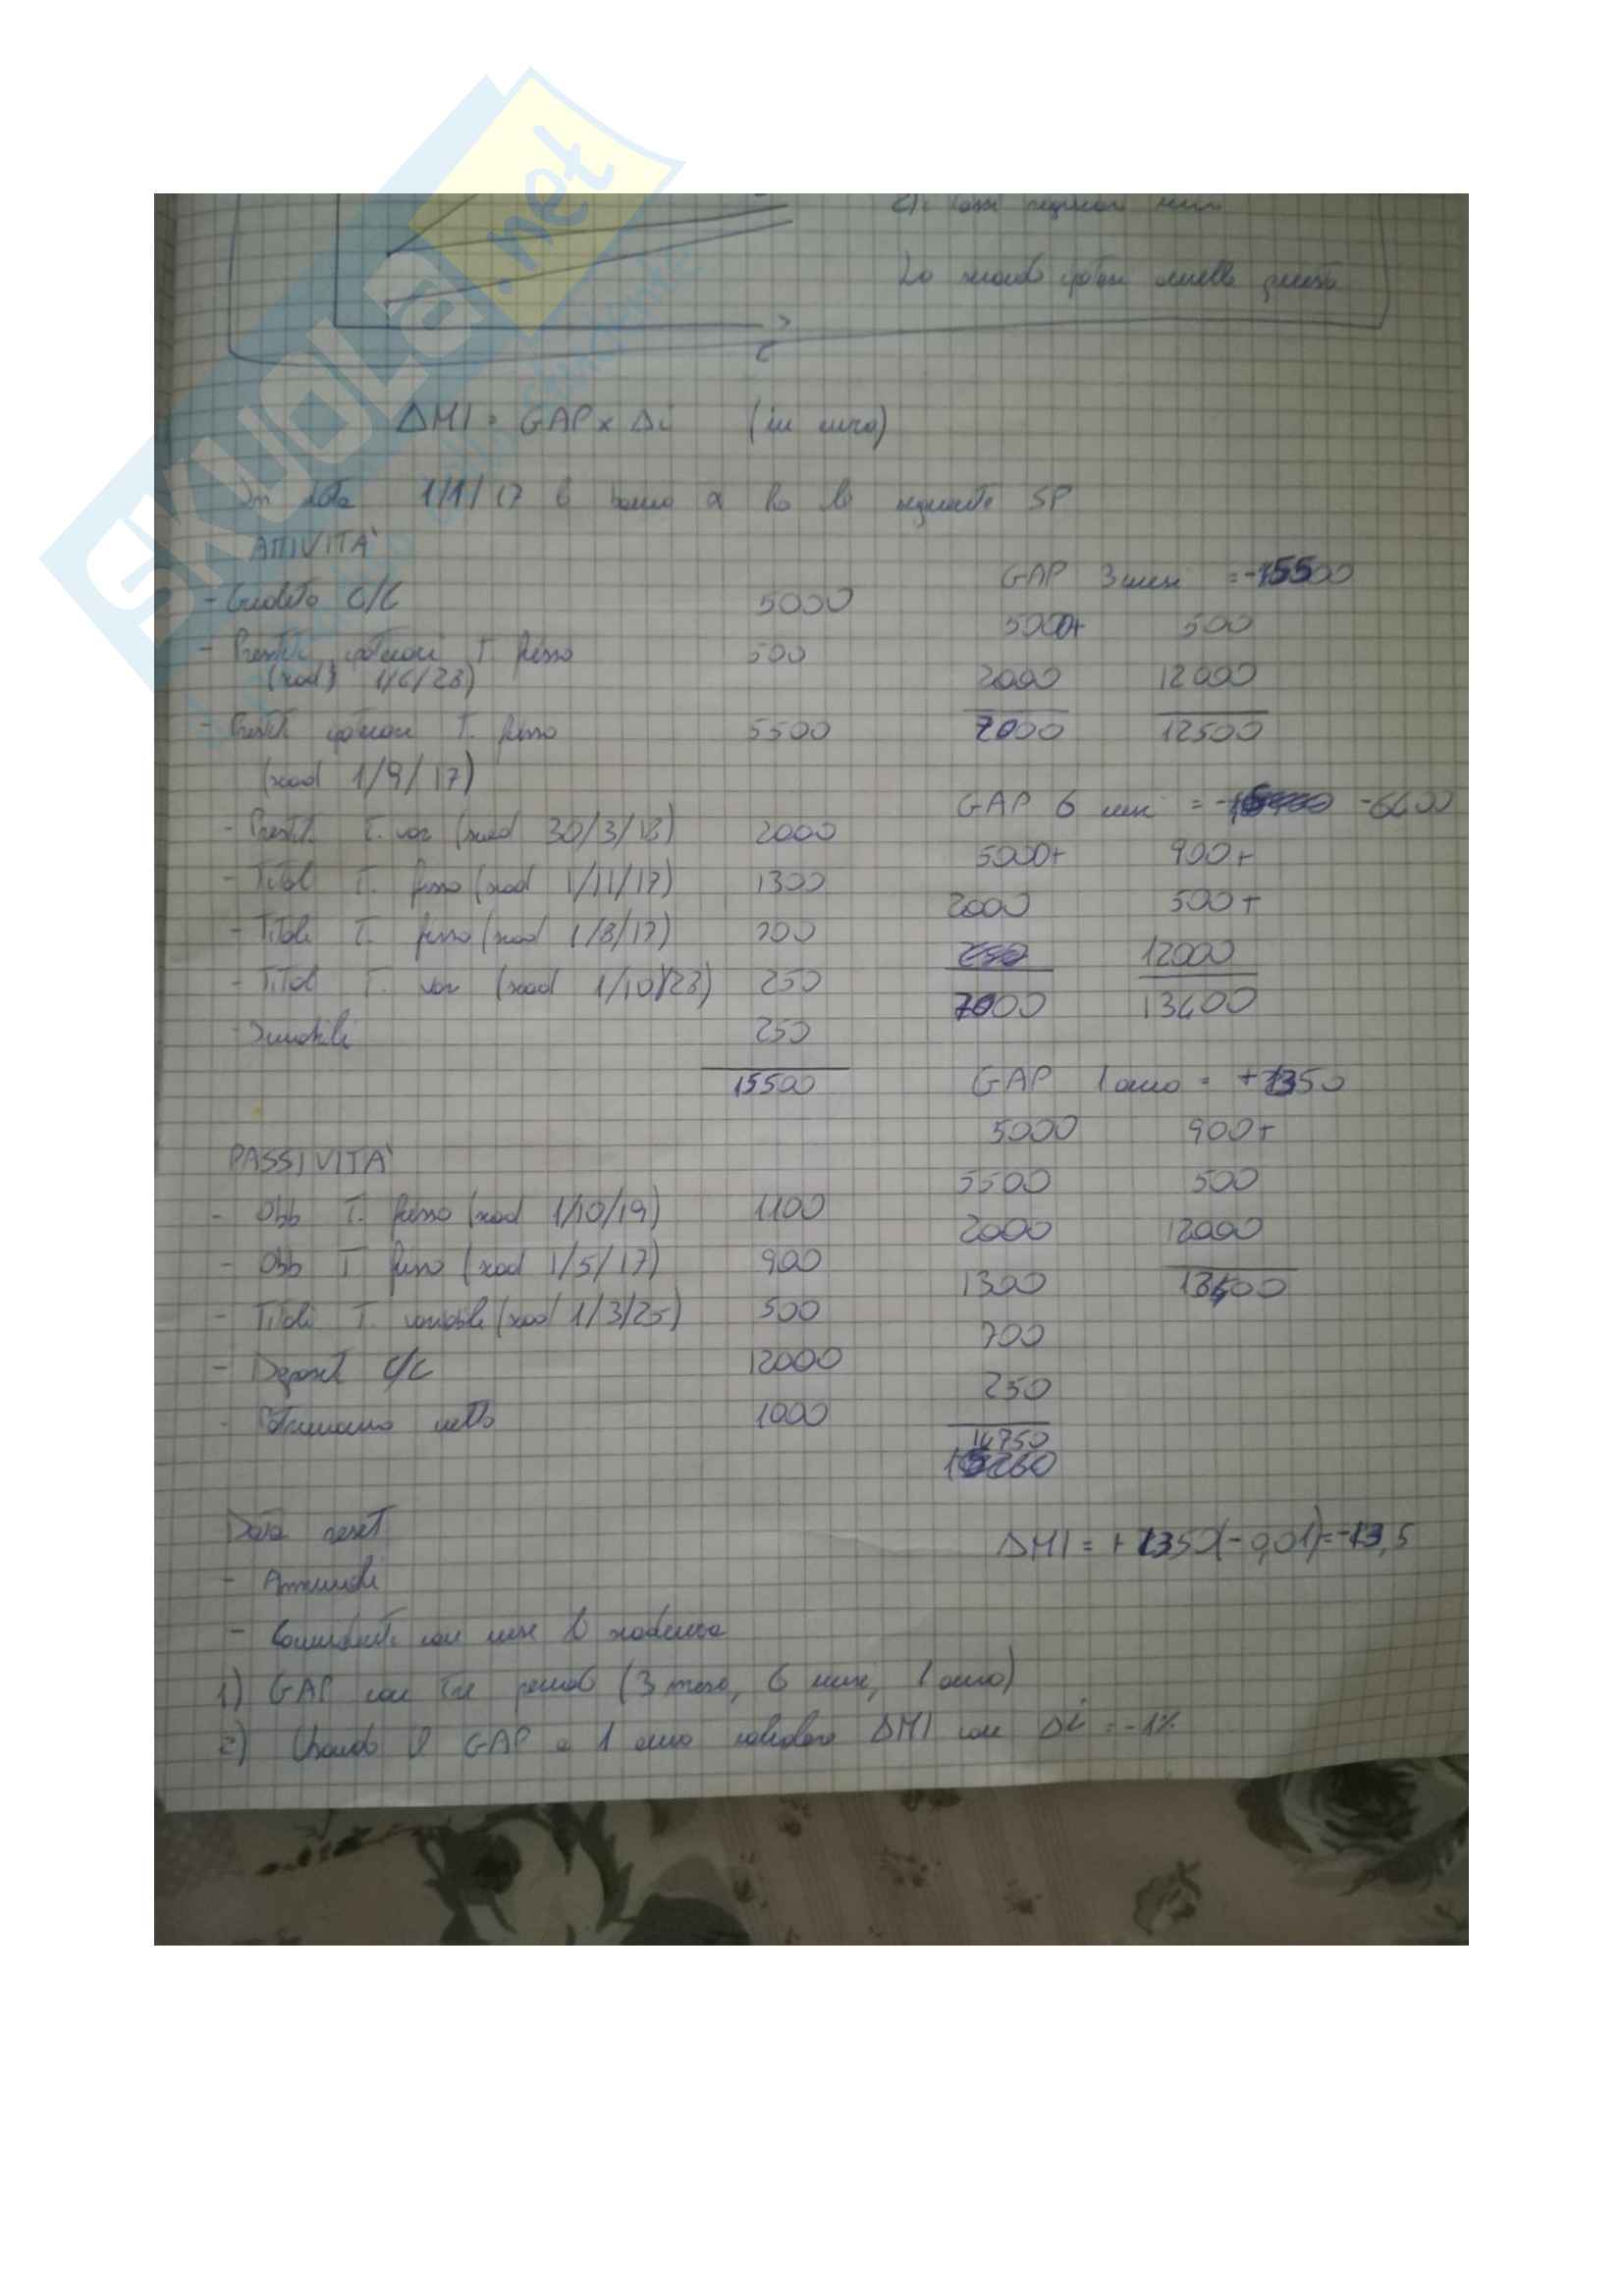 SKUOLA.net
Lo secondo ipotesi
ΔMI = GAP x Δi (in euro)
In data 1/1/17 la banca α ha lo seguente SP
ATTIVITA'
GAP 3 mesi = -5500
- Credito C/C 5000
5000+ 500
- Prestiti ipotecari T. fisso 500
(scad 1/6/23)
2000 12000
- Prestiti ipotecari T. fisso 5500
7000 12500
(scad 1/9/17)
GAP 6 mesi = -6400
- Prestiti T. var (scad 30/3/18) 2000
5000+ 900+
- Titoli T. fisso (scad 1/11/17) 1300
2000 500+
- Titoli T. fisso (scad 1/8/17) 700
12000
- Titoli T. var (scad 1/10/23) 250
7000 13400
- Immobili 250
15500
GAP 1 anno = +1350
5000 900+
PASSIVITA'
5500 500
- Obb T. fisso (scad 1/10/19) 1100
2000 12000
- Obb T fisso (scad 1/5/17) 900
1300 13400
- Titoli T. variabile (scad 1/3/25) 500
700
- Depositi C/C 12000
250
- Patrimonio netto 1000
14750
Data reset
ΔMI = +1350(-0,01)=-13,5
- Annuali
- Coincidenti con mese di scadenza
1) GAP con tre periodi (3 mesi, 6 mesi, 1 anno)
2) Usando il GAP a 1 anno calcolare ΔMI con Δi = -1%